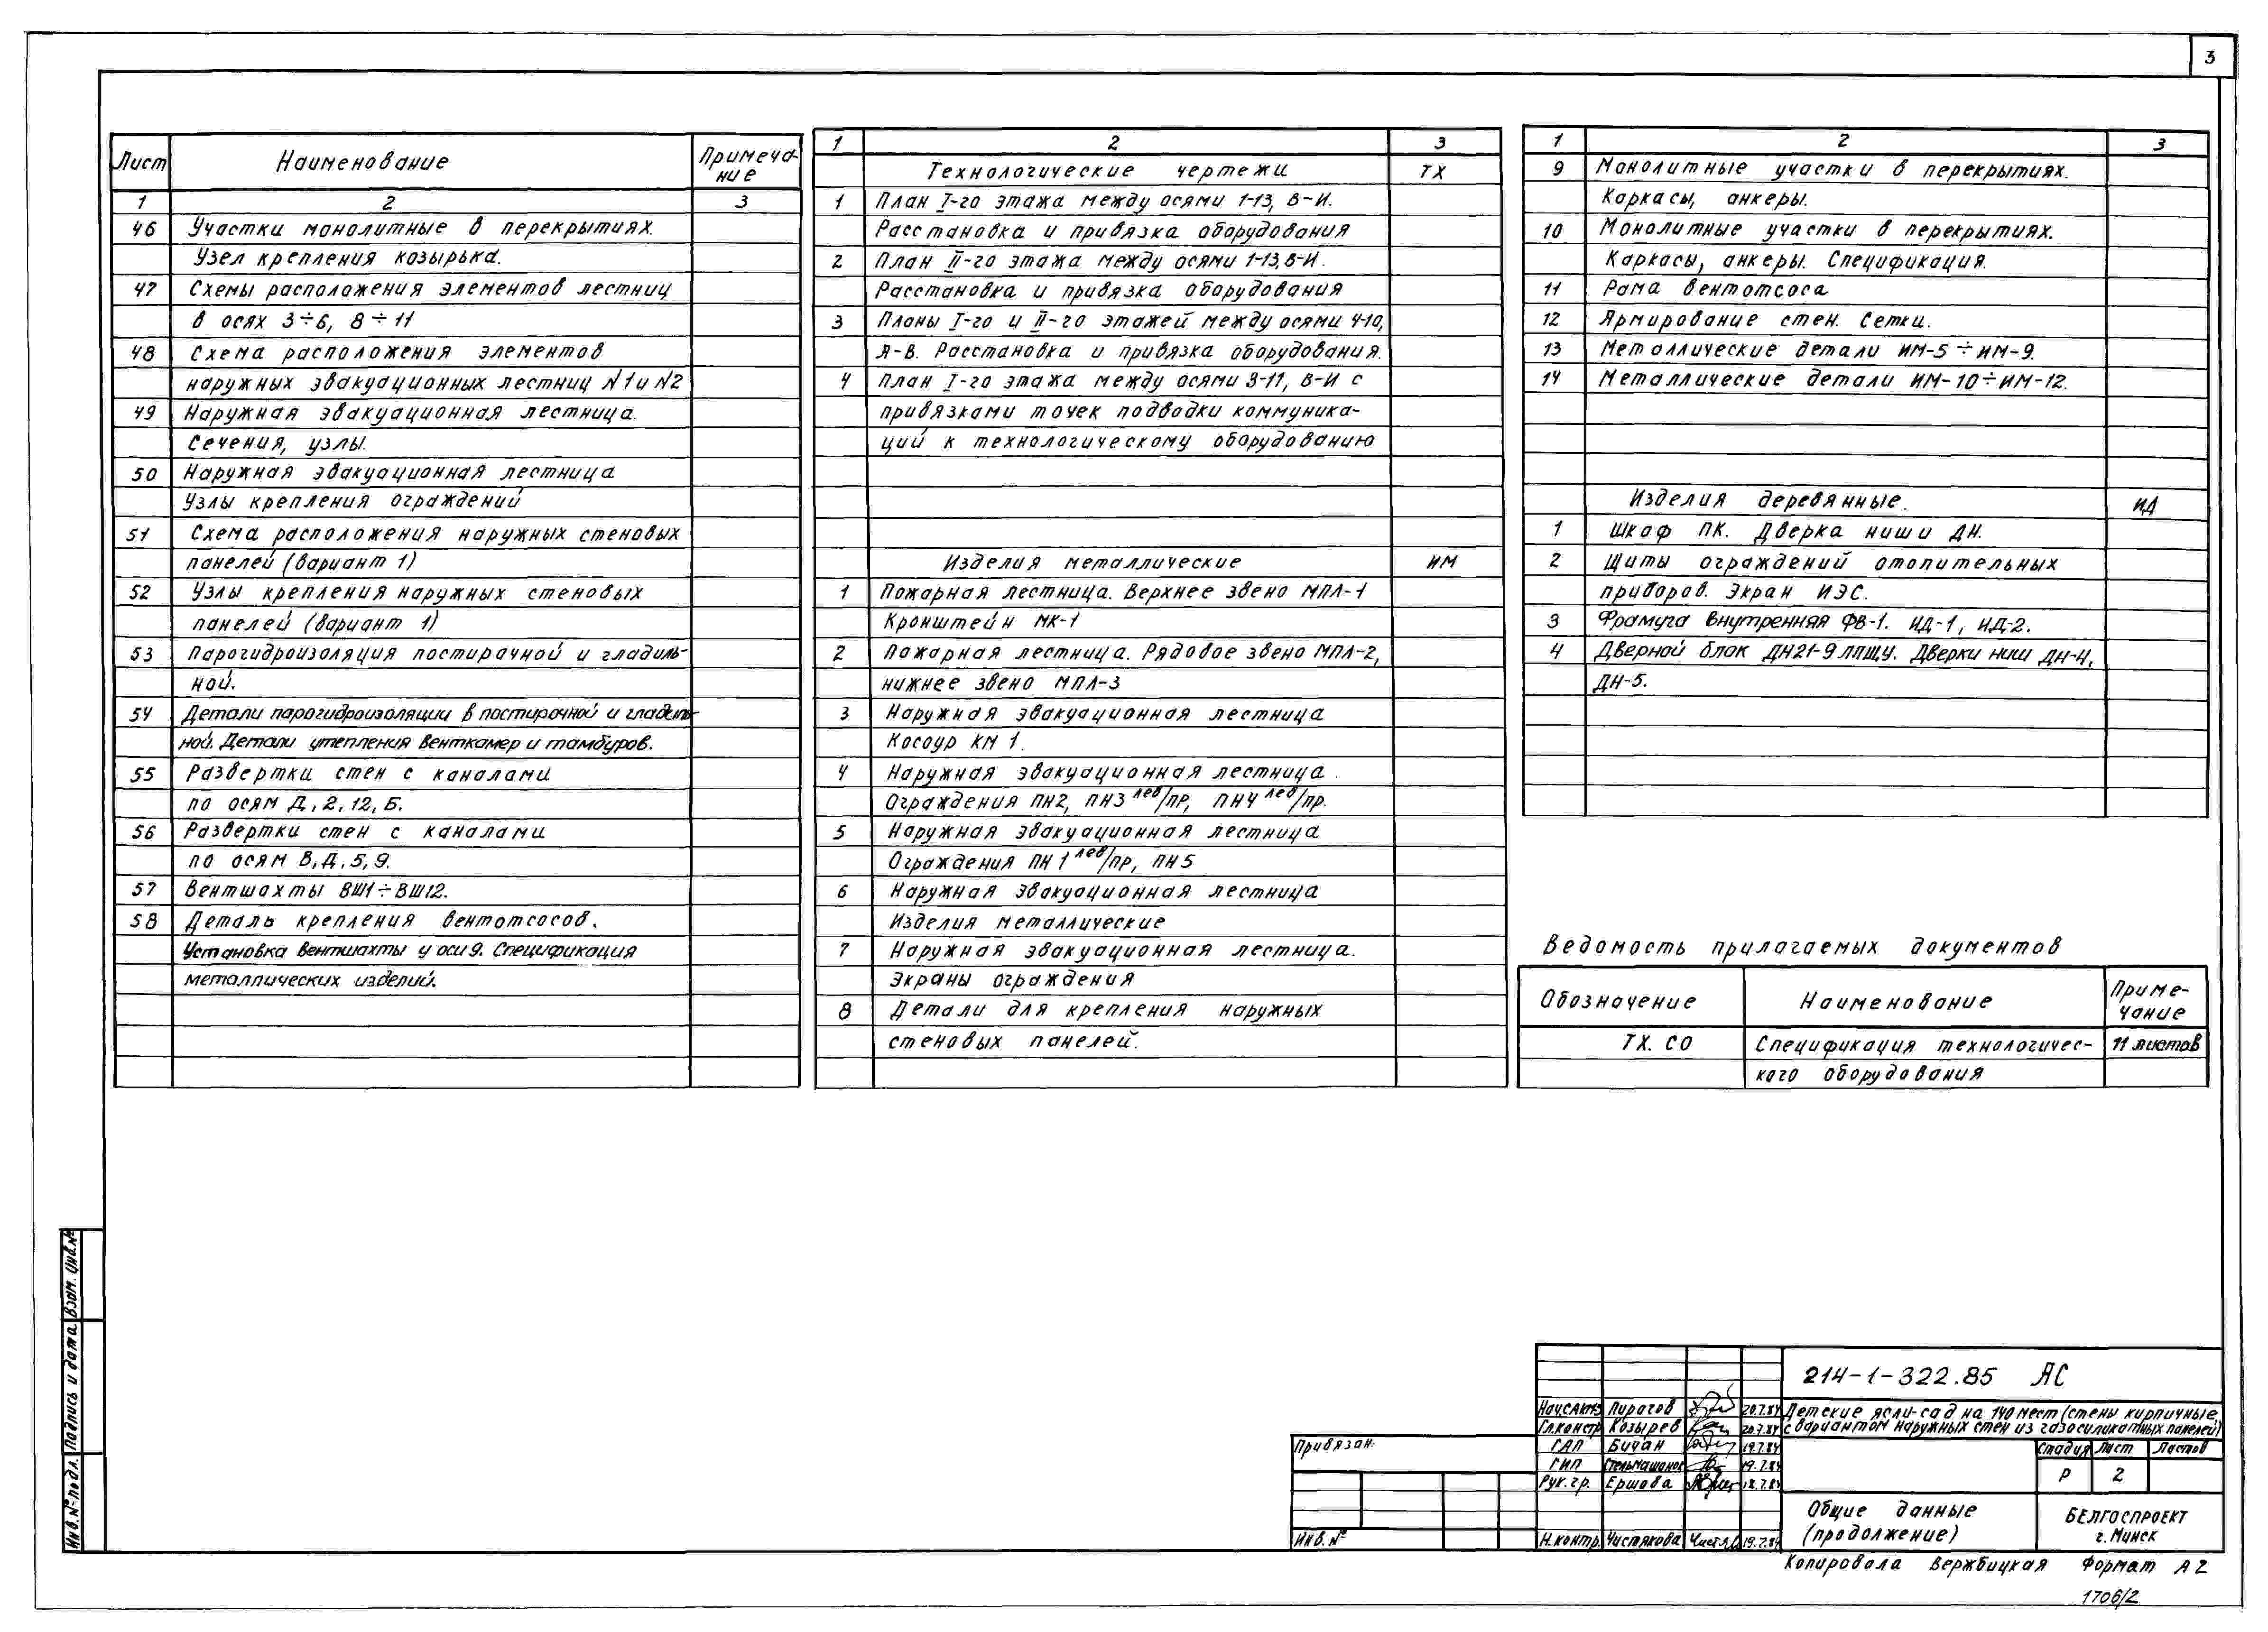 3
Лист Наименование Примеча-
ние
1 2 3
46 Участки монолитные в перекрытиях.
Узел крепления козырька.
47 Схемы расположения элементов лестниц
в осях 3÷6, 8÷11
48 Схема расположения элементов
наружных эвакуационных лестниц N1 и N2
49 Наружная эвакуационная лестница.
Сечения, узлы.
50 Наружная эвакуационная лестница
Узлы крепления ограждений
51 Схема расположения наружных стеновых
панелей (вариант 1)
52 Узлы крепления наружных стеновых
панелей (вариант 1)
53 Парогидроизоляция постирочной и гладиль-
ной.
54 Детали парогидроизоляции в постирочной и гладиль-
ной. Детали утепления венткамер и тамбуров.
55 Развертки стен с каналами
по осям Д, 2, 12, Б.
56 Развертки стен с каналами
по осям В, Д, 5, 9.
57 Вентшахты ВШ1÷ВШ12.
58 Деталь крепления вентотсосов.
Установка вентшахты у оси 9. Спецификация
металлических изделий.
1 2 3
Технологические чертежи ТХ
1 План I-го этажа между осями 1-13, В-И.
Расстановка и привязка оборудования
2 План II-го этажа между осями 1-13, В-И.
Расстановка и привязка оборудования
3 Планы I-го и II-го этажей между осями 4-10,
А-В. Расстановка и привязка оборудования.
4 План I-го этажа между осями 3-11, В-И с
привязками точек подводки коммуника-
ций к технологическому оборудованию
Изделия металлические ИМ
1 Пожарная лестница. Верхнее звено МПЛ-1
Кронштейн МК-1
2 Пожарная лестница. Рядовое звено МПЛ-2,
нижнее звено МПЛ-3
3 Наружная эвакуационная лестница
Косоур КМ 1.
4 Наружная эвакуационная лестница.
Ограждения ПН2, ПН3 лев/пр, ПН4 лев/пр.
5 Наружная эвакуационная лестница
Ограждения ПН 1 лев/пр, ПН5
6 Наружная эвакуационная лестница
Изделия металлические
7 Наружная эвакуационная лестница.
Экраны ограждения
8 Детали для крепления наружных
стеновых панелей.
1 2 3
9 Монолитные участки в перекрытиях.
Каркасы, анкеры.
10 Монолитные участки в перекрытиях.
Каркасы, анкеры. Спецификация.
11 Рама вентотсоса
12 Армирование стен. Сетки.
13 Металлические детали ИМ-5÷ИМ-9.
14 Металлические детали ИМ-10÷ИМ-12.
Изделия деревянные. ИД
1 Шкаф ПК. Дверка ниши ДН.
2 Щиты ограждений отопительных
приборов. Экран ИЭС.
3 Фрамуга внутренняя ФВ-1. ИД-1, ИД-2.
4 Дверной блок ДН21-9ЛПЩУ. Дверки ниш ДН-4,
ДН-5.
Ведомость прилагаемых документов
Обозначение Наименование Приме-
чание
ТХ. СО Спецификация технологичес- 11 листов
кого оборудования
Инв. № подл. Подпись и дата Взам. инв. №
Привязан:
Инв. №
214-1-322.85 АС
Нач.САКМ3 Пирагов 20.7.84
Гл.констр Козырев 20.7.84
ГАП Бичан 19.7.84
ГИП 19.7.84
Рук.гр. Ершова 18.7.84
Н.контр. Чистякова 19.7.84
Детские ясли-сад на 140 мест (стены кирпичные
с вариантом наружных стен из газосиликатных панелей)
Стадия Лист Листов
Р 2
Общие данные
(продолжение)
БЕЛГОСПРОЕКТ
г. Минск
Копировала Вержбицкая Формат А2
1706/2